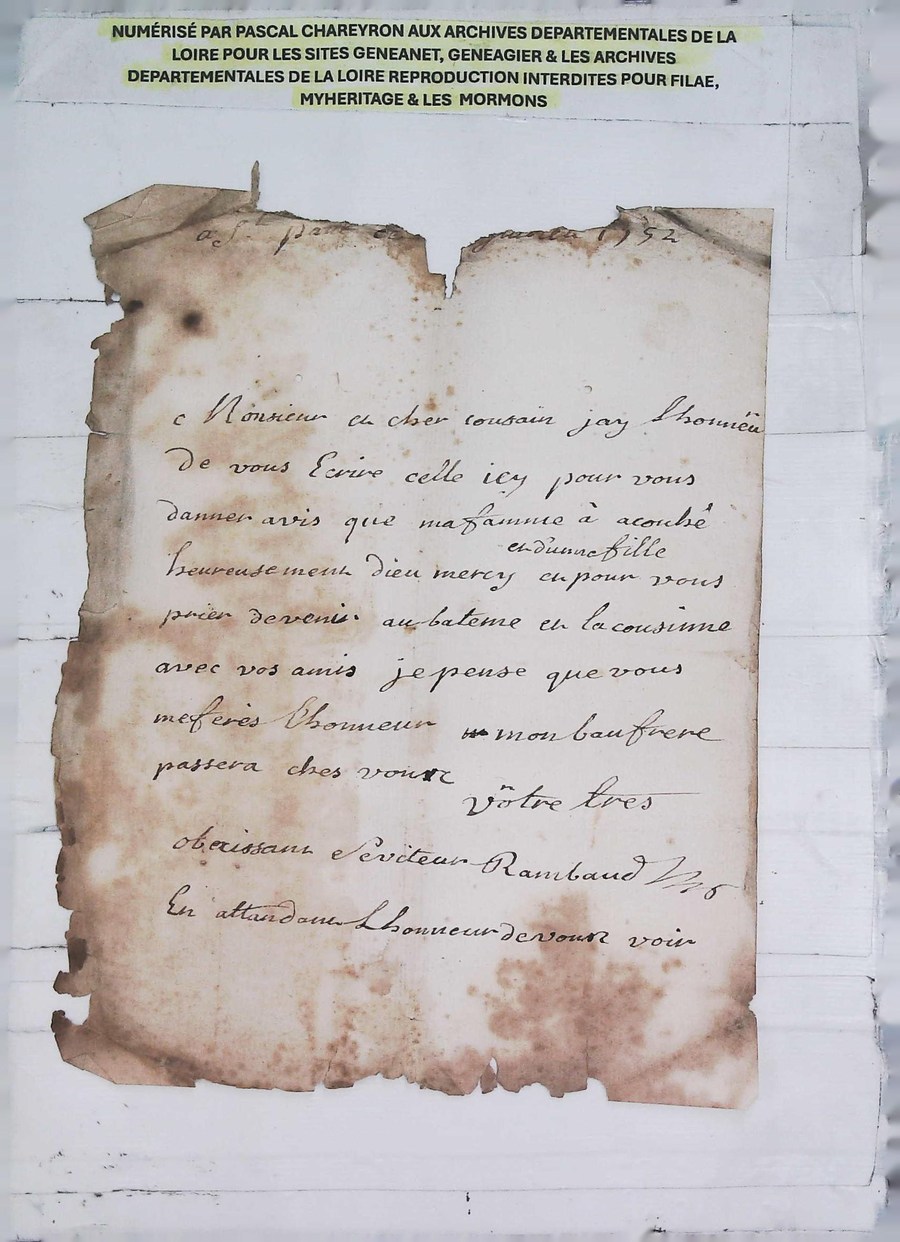 NUMÉRISÉ PAR PASCAL CHAREYRON AUX ARCHIVES DEPARTEMENTALES DE LA
LOIRE POUR LES SITES GENEANET, GENEAGIER & LES ARCHIVES
DEPARTEMENTALES DE LA LOIRE REPRODUCTION INTERDITES POUR FILAE,
MYHERITAGE & LES MORMONS
a St 1752
Monsieur et cher cousain jay lhonneu
de vous Ecrire celle icy pour vous
danner avis que ma famme à acouhé
et dunne fille
heureusement dieu mercy et pour vous
prier de venir au bateme et la cousinne
avec vos amis je pense que vous
me ferès lhonneur mon baufrere
passera ches vous
vötre tres
obeissant Serviteur Rambaud
En attandant Lhonneur de vous voir